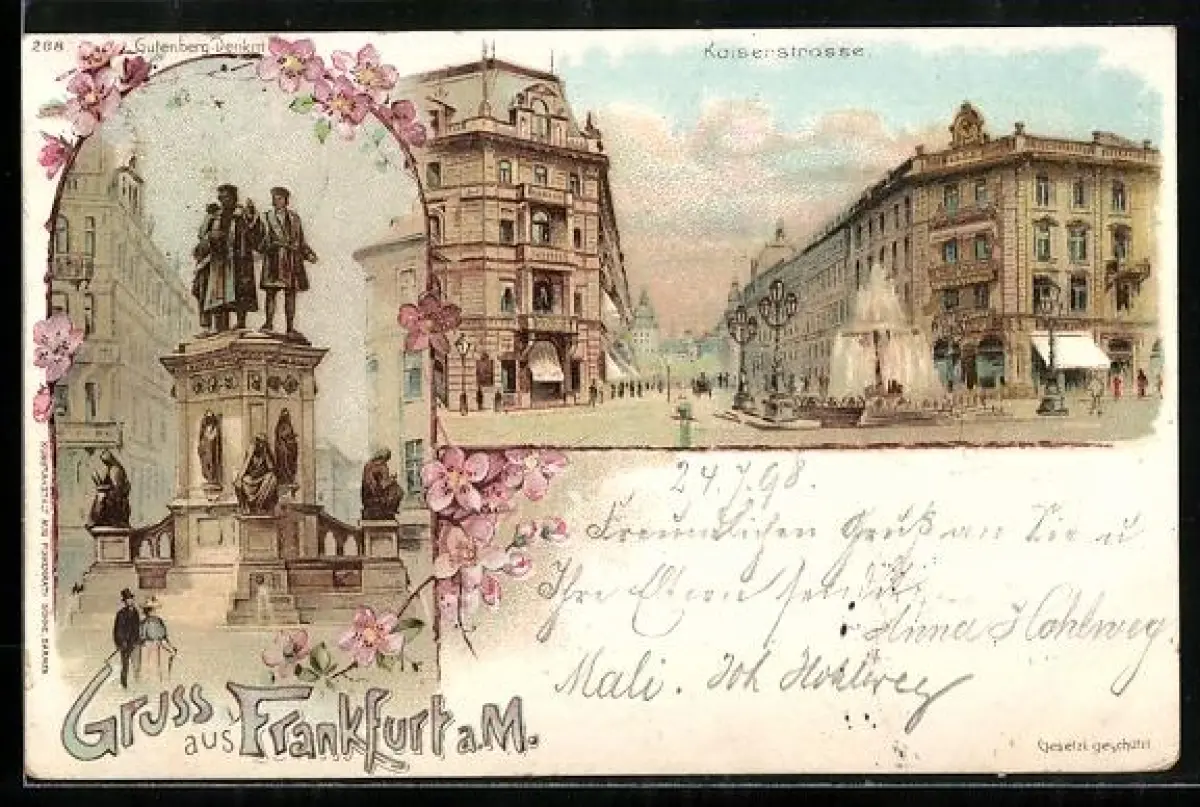 288
Gutenberg-Denkm
Kaiserstrasse.
24.7.98.
Freundlichen Gruß an Sie u
Ihre Eltern sendet
Anna Hohlweg
Mali. Joh Hohlweg
Gruss
aus Frankfurt a.M.
Gesetzl. geschützt